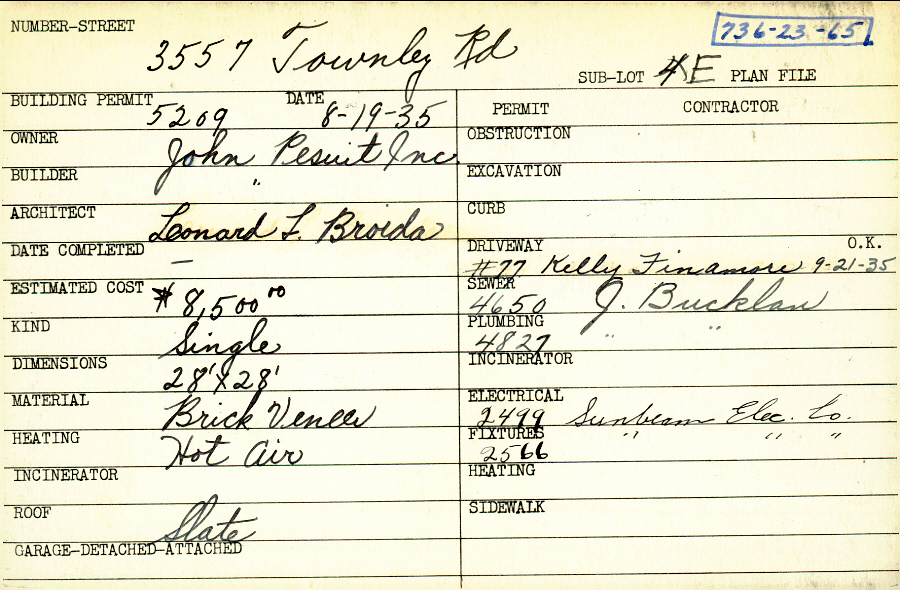 NUMBER-STREET 3557 Townley Rd
736-23-65
SUB-LOT 4E PLAN FILE
BUILDING PERMIT 5209 DATE 8-19-35
OWNER John Pesuit Inc.
BUILDER "
ARCHITECT Leonard L. Broida
DATE COMPLETED —
ESTIMATED COST $8,500⁰⁰
KIND Single
DIMENSIONS 28'X28'
MATERIAL Brick Veneer
HEATING Hot Air
INCINERATOR
ROOF Slate
GARAGE-DETACHED-ATTACHED
PERMIT CONTRACTOR
OBSTRUCTION
EXCAVATION
CURB
DRIVEWAY O.K.
#77 Kelly Finamore 9-21-35
SEWER
4650 J. Bucklaw
PLUMBING
4827 " "
INCINERATOR
ELECTRICAL
2499 Sunbeam Elec. Co.
FIXTURES " " "
2566
HEATING
SIDEWALK